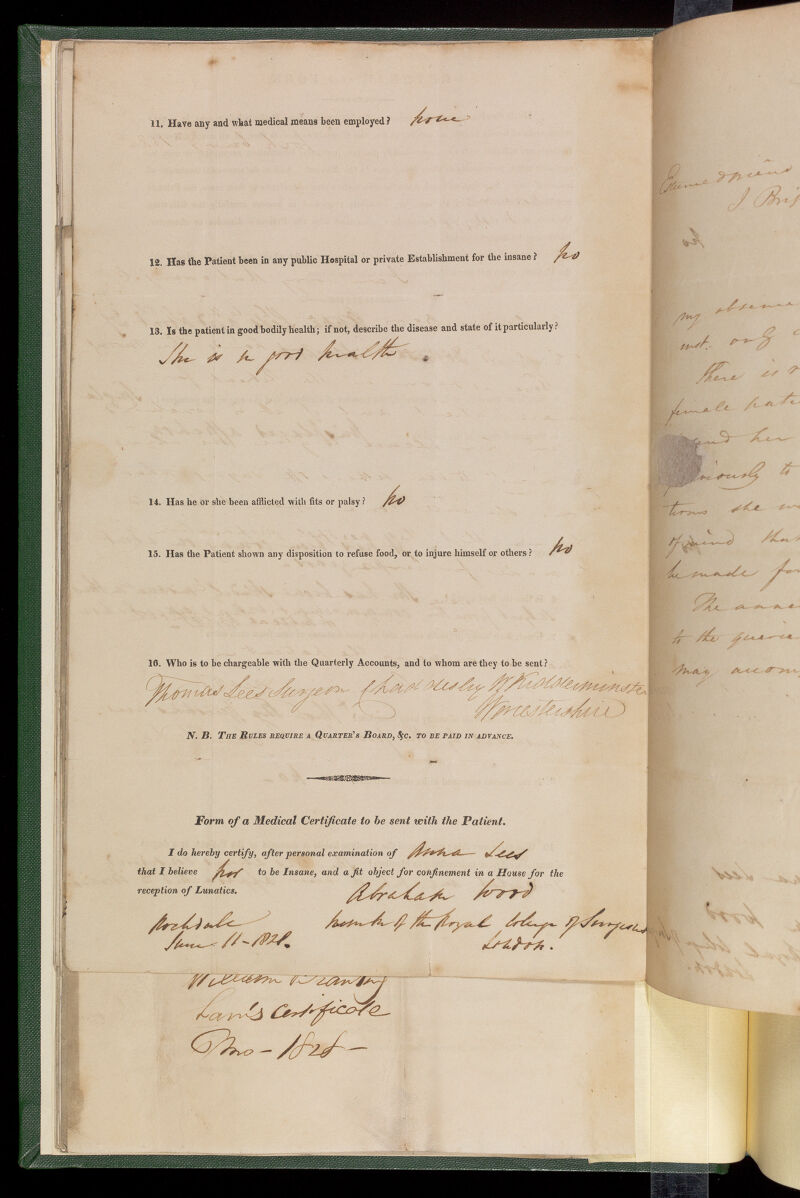 11. Have any and what medical means been employed? none
12. Has the Patient been in any public Hospital or private Establishment for the insane? no
13. Is the patient in good bodily health; if not, describe the disease and state of it particularly?
She is in good health.
14. Has he or she been afflicted with fits or palsy? no
15. Has the Patient shown any disposition to refuse food, or to injure himself or others? no
16. Who is to be chargeable with the Quarterly Accounts, and to whom are they to be sent?
Thomas Lees Surgeon Chaddesley Nr Kidderminster
Worcestershire
N. B. The Rules require a Quarter's Board, &c. to be paid in advance.
Form of a Medical Certificate to be sent with the Patient.
I do hereby certify, after personal examination of Anna Lees
that I believe her to be Insane, and a fit object for confinement in a House for the
reception of Lunatics.
Abraham Wood
Rochdale member of the Royal College of Surgeons
June 11-1828. London.
William
certificate
1828
my absence
inst. only
There is
female
and her
to
she
of mind that
be made for
The
to the
may